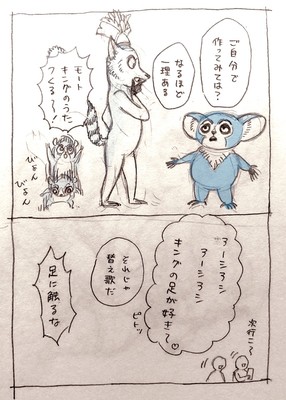 ご自分で
作ってみては？
なるほど
一理ある
モート
キングのうた
つくる〜！
びょん
びょん
アーシアシ
アーシアシ
キングの足が好き〜♡
それじゃ
替え歌だ
ピトッ
足に触るな
次行こ〜